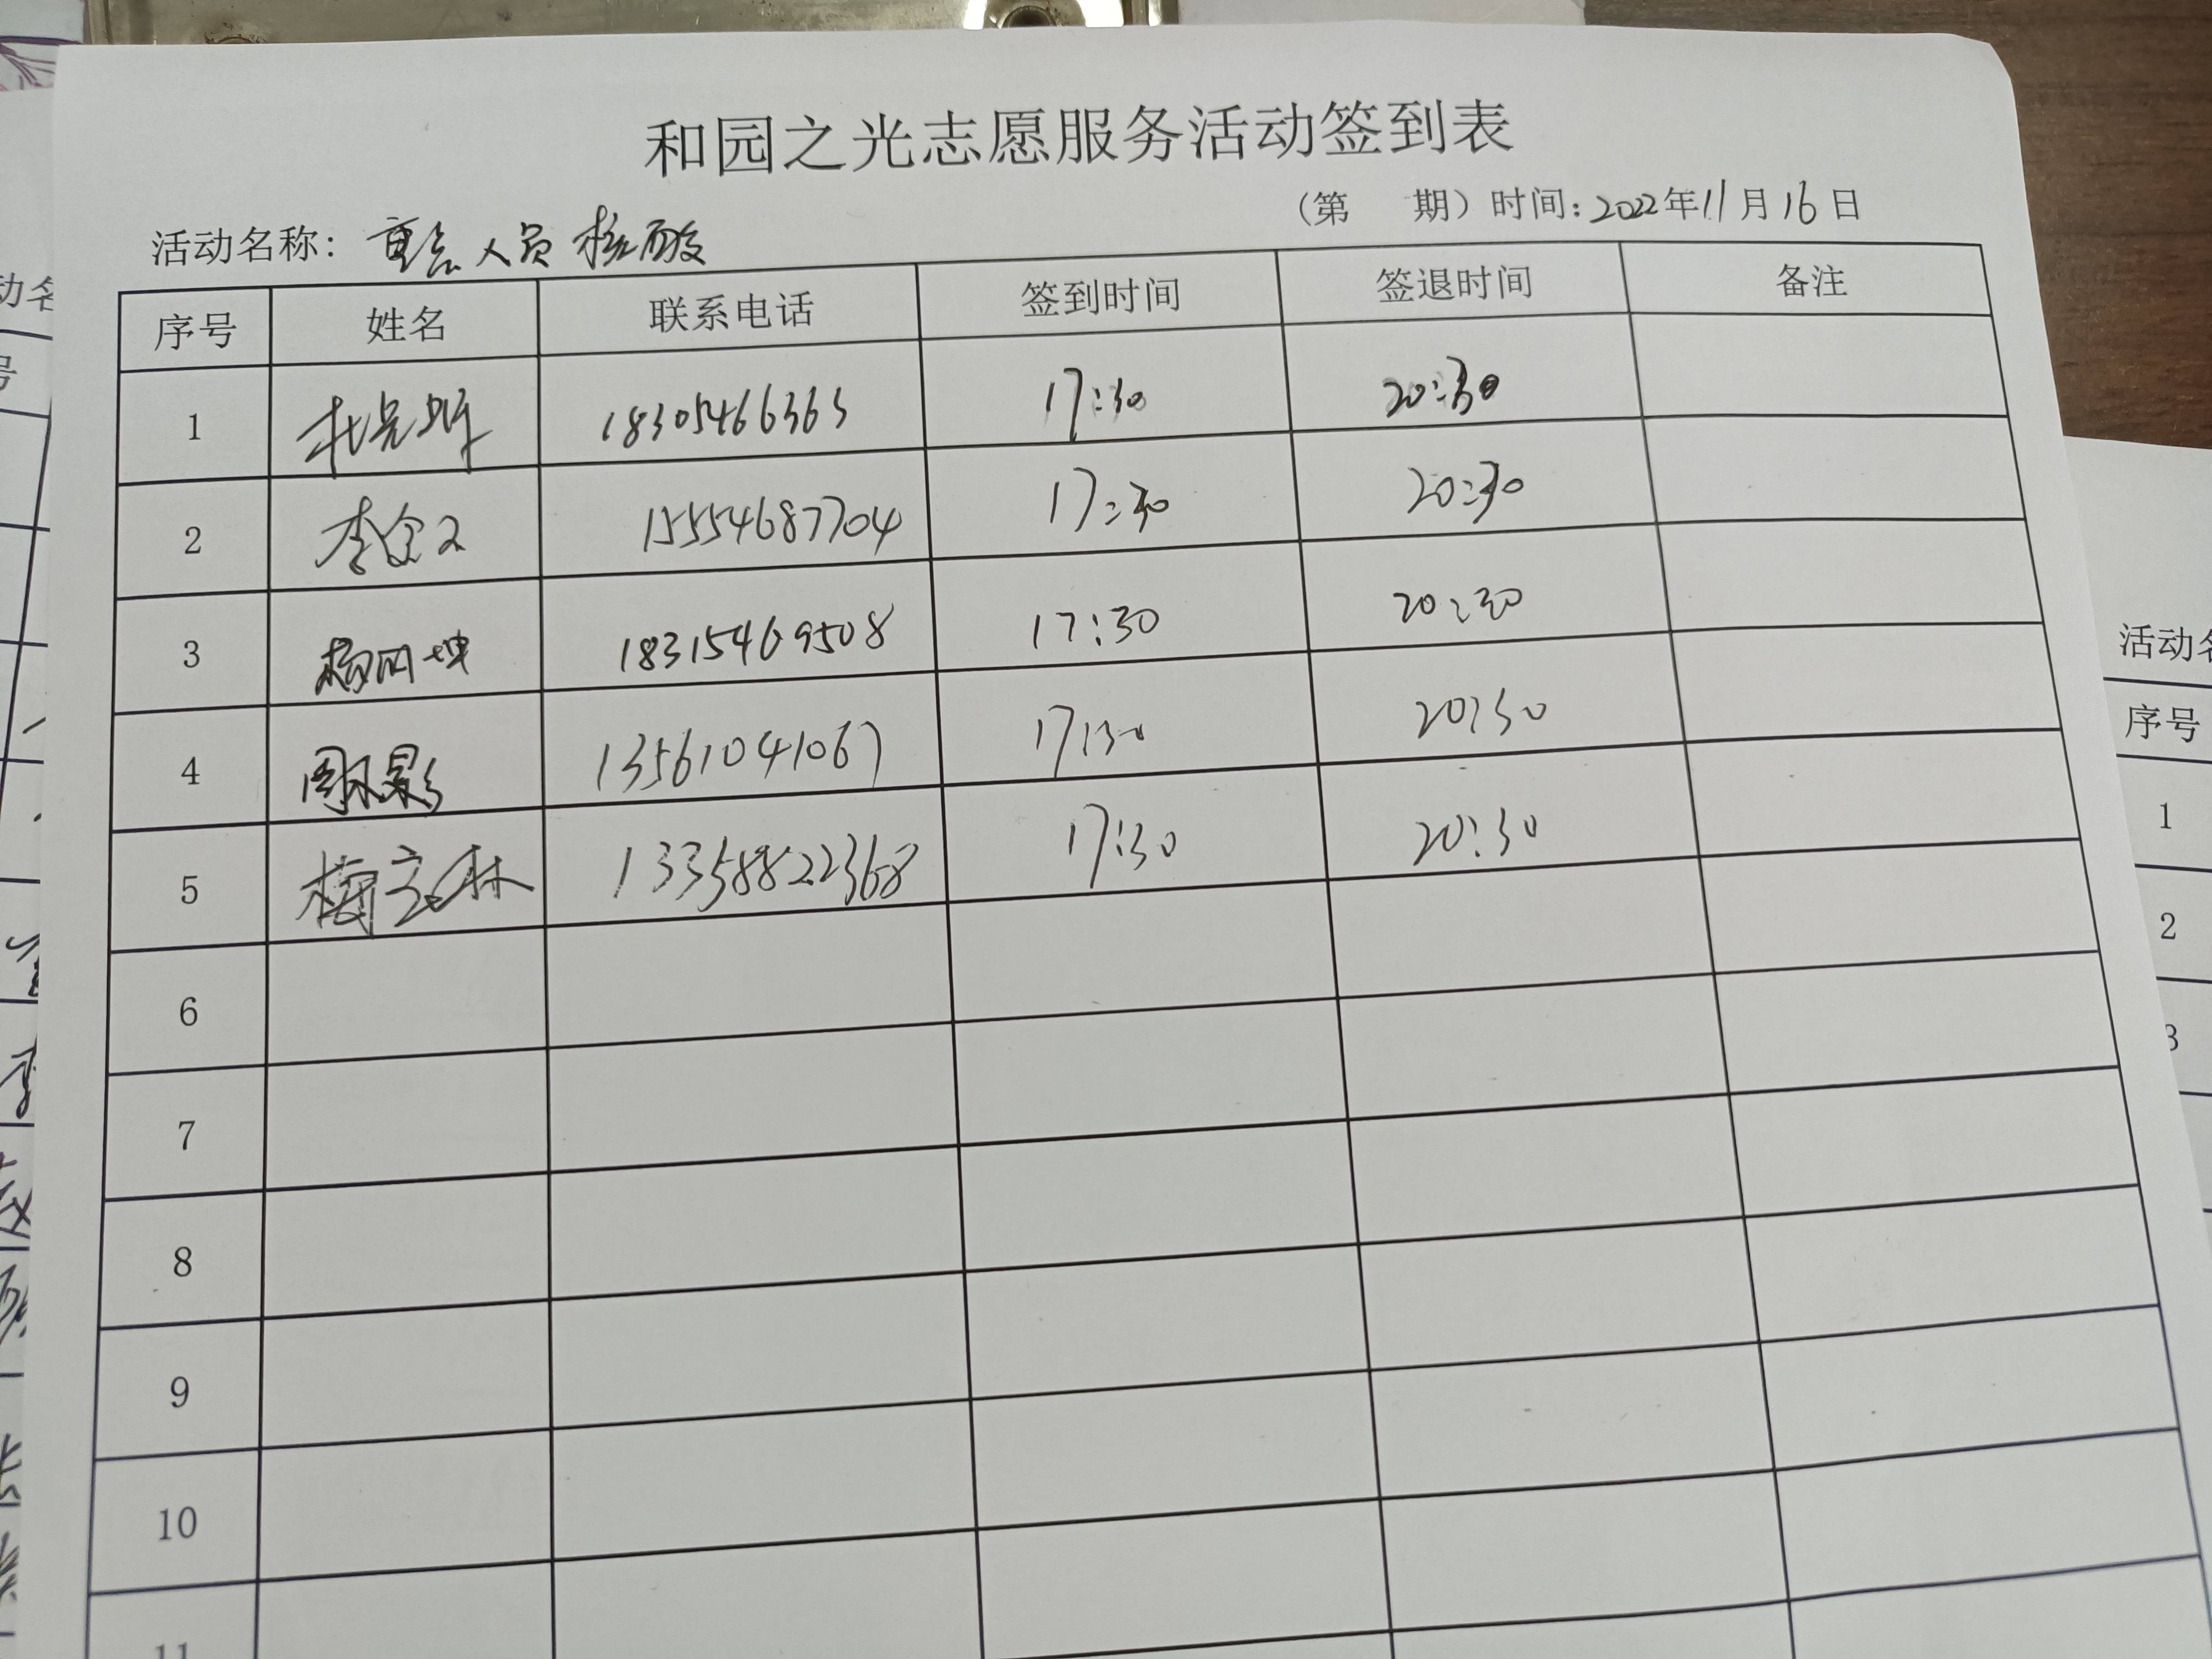 和园之光志愿服务活动签到表
（第 期）时间：2022年11月16日
活动名称：重点人员核酸
序号 姓名 联系电话 签到时间 签退时间 备注
1 18305466363 17:30 20:30
2 15554687704 17:30 20:30
3 18315469508 17:30 20:30
4 13561041067 17:30 20:30
5 梅立林 13358822368 17:30 20:30
6
7
8
9
10
11
动名
号
活动名
序号
1
2
3